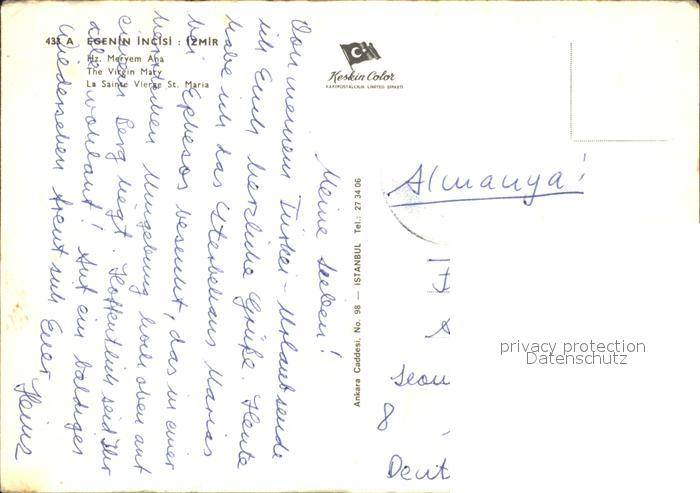 433 A EGENİN İNCİSİ : İZMİR
Hz. Meryem Ana
The Virgin Mary
La Sainte Vierge St. Maria
Keskin Color
KARTPOSTALCILIK LIMITED ŞİRKETİ
Ankara Caddesi, No. 98 — ISTANBUL Tel.: 27 34 06
Meine Lieben!
Von meinem Türkei-Urlaub sende
ich Euch herzliche Grüße. Heute
habe ich das Sterbehaus Marias
bei Ephesos besucht, das in einer
herrlichen Umgebung hoch oben auf
einem Berg liegt. Hoffentlich seid Ihr
alle wohlauf! Auf ein baldiges
Wiedersehen freut sich Euer
Heinz
Almanya!
8
Deut
privacy protection
Datenschutz